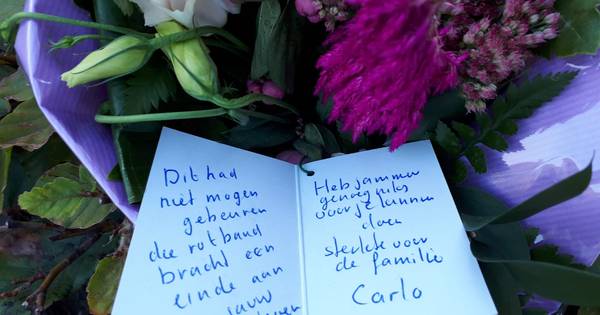 Dit had
niet mogen
gebeuren
die rotband
bracht een
einde aan
jouw
Heb jammer
genoeg niks
voor je kunnen
doen
sterkte voor
de familie
Carlo